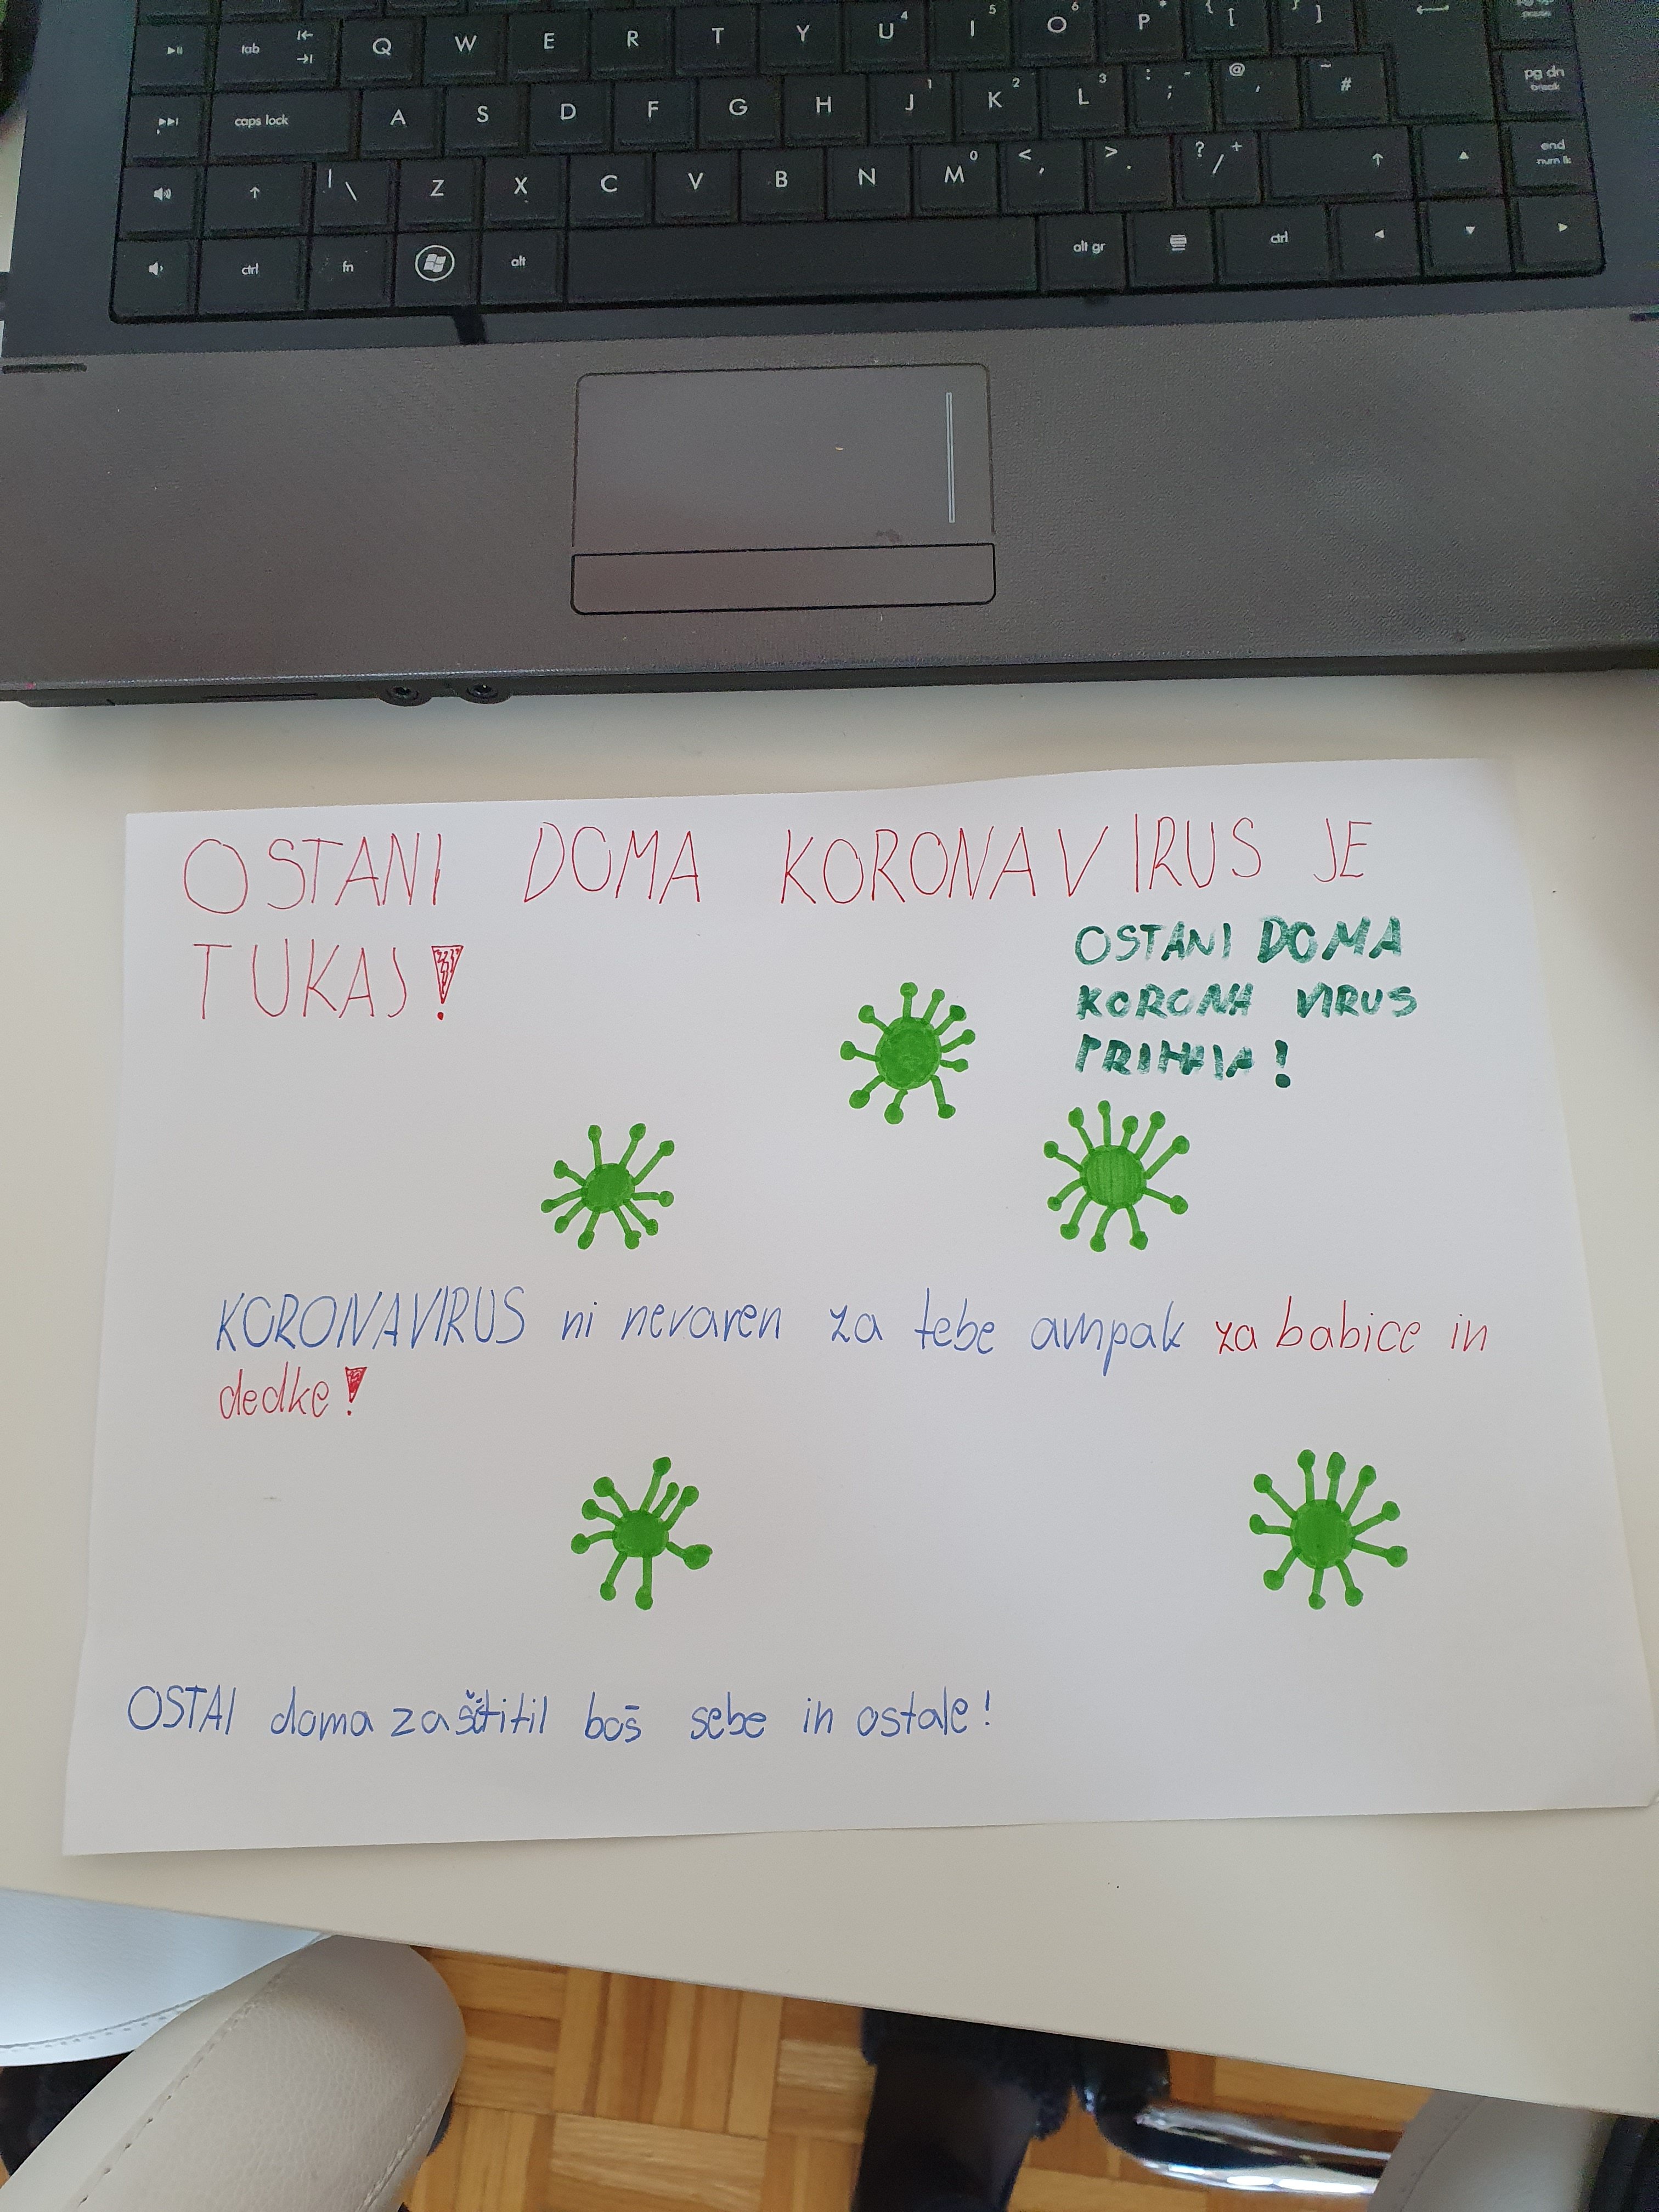 tab
Q W E R T Y U 4 I 5 O 6 P * { [ } ]
pg dn
break
caps lock A S D F G H J 1 K 2 L 3 : ; - @ ' ~ #
end
| \ Z X C V B N M 0 < , > . ? / +
ctrl fn alt alt gr ctrl
OSTANI DOMA KORONAVIRUS JE
TUKAJ!
OSTANI DOMA
KORONA VIRUS
PRIHAJA!
KORONAVIRUS ni nevaren za tebe ampak za babice in
dedke!
OSTAI doma zaščitil boš sebe in ostale!